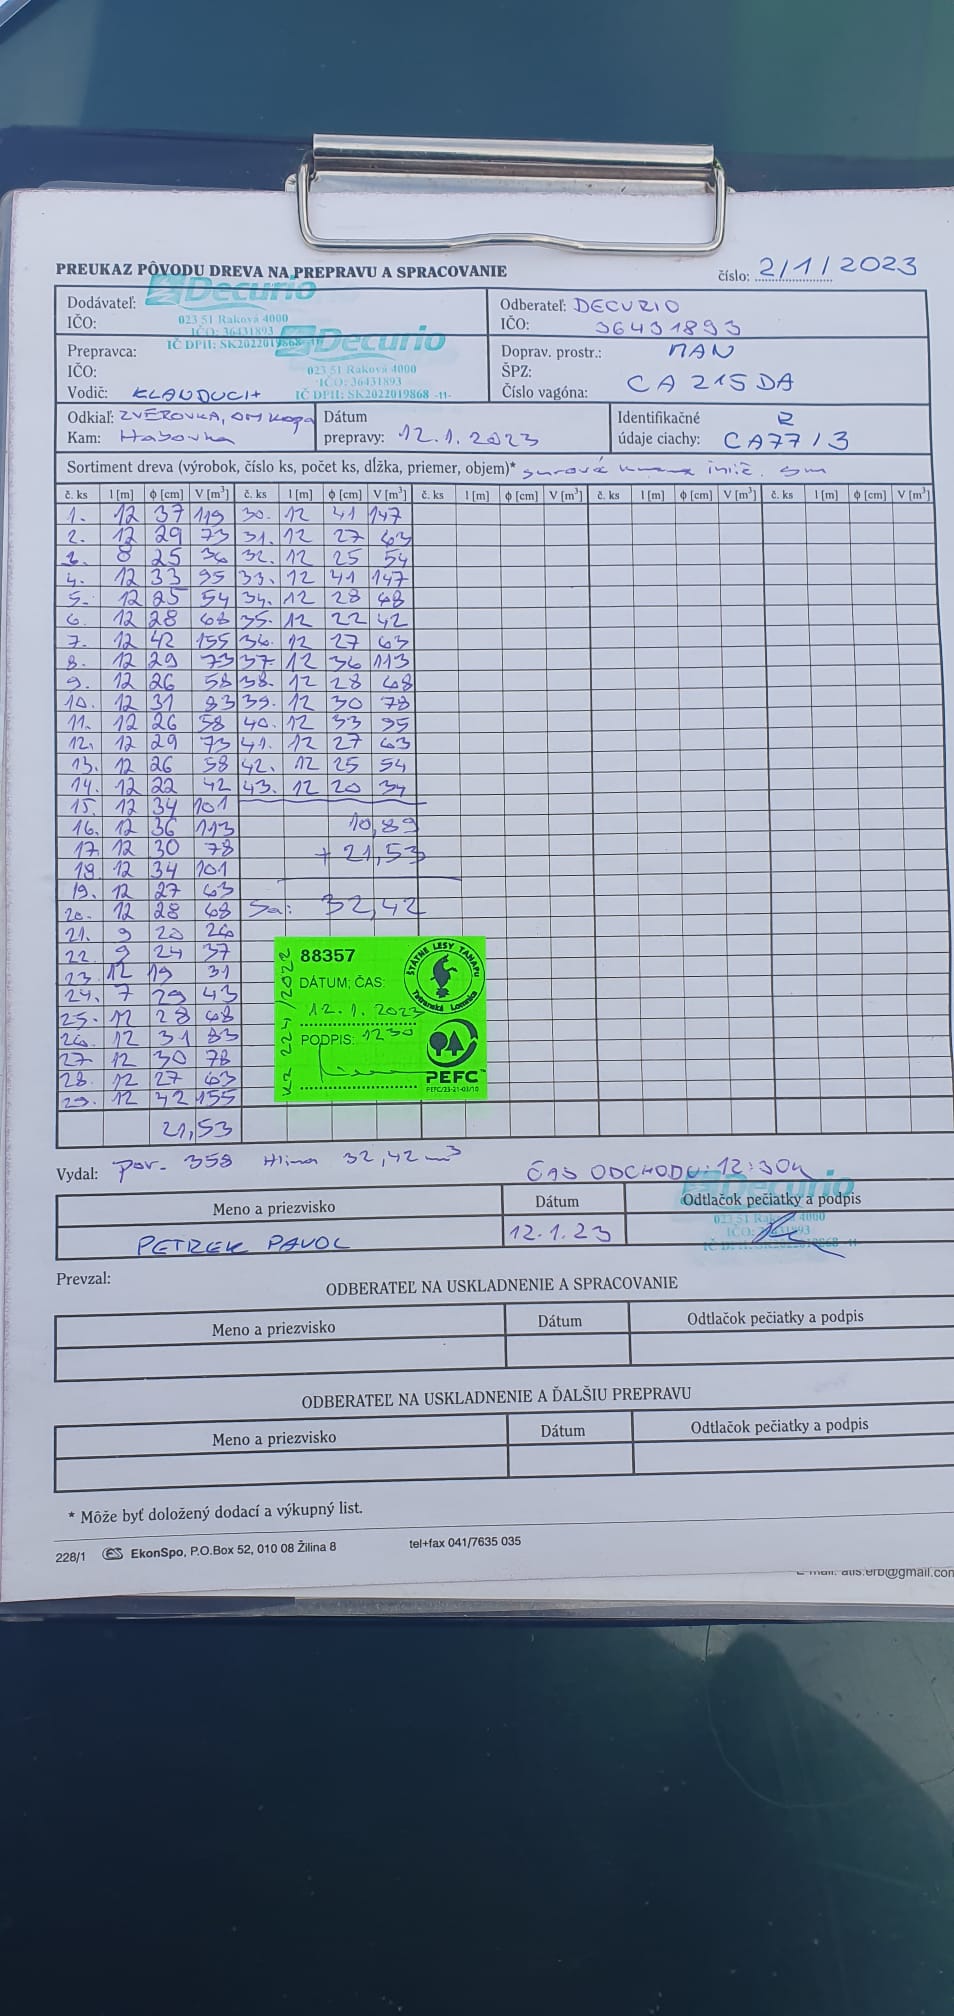 PREUKAZ PÔVODU DREVA NA PREPRAVU A SPRACOVANIE
číslo: 2/1/2023
Decurio
023 51 Raková 4000
IČO: 36431893
IČ DPH: SK2022019868
Dodávateľ:
IČO:
Odberateľ: DECURIO
IČO: 36431893
Decurio
023 51 Raková 4000
IČO: 36431893
IČ DPH: SK2022019868 -11-
Prepravca:
IČO:
Vodič: KLAUDUCH
Doprav. prostr.: MAN
ŠPZ:
Číslo vagóna: CA 215DA
Odkiaľ: ZVEROVKA, OM Kopa
Kam: Habovka
Dátum
prepravy: 12.1.2023
Identifikačné
údaje ciachy: CA77/3
Sortiment dreva (výrobok, číslo ks, počet ks, dĺžka, priemer, objem)* surová sm
č. ks l [m] φ [cm] V [m³] č. ks l [m] φ [cm] V [m³] č. ks l [m] φ [cm] V [m³] č. ks l [m] φ [cm] V [m³] č. ks l [m] φ [cm] V [m³]
1. 12 37 119 30. 12 41 147
2. 12 29 73 31. 12 27 63
3. 8 25 36 32. 12 25 54
4. 12 33 95 33. 12 41 147
5. 12 25 54 34. 12 28 68
6. 12 28 68 35. 12 22 42
7. 12 42 155 36. 12 27 63
8. 12 29 73 37. 12 36 113
9. 12 26 58 38. 12 28 68
10. 12 31 83 39. 12 30 78
11. 12 26 58 40. 12 33 95
12. 12 29 73 41. 12 27 63
13. 12 26 58 42. 12 25 54
14. 12 22 42 43. 12 20 34
15. 12 34 101
16. 12 36 113 10,89
17. 12 30 78 + 21,53
18. 12 34 101
19. 12 27 63
20. 12 28 68 Sa: 32,42
21. 9 20 26
22. 9 24 37
23. 12 19 31
24. 7 29 43
25. 12 28 68
26. 12 31 83
27. 12 30 78
28. 12 27 63
29. 12 42 155
21,53
88357
DÁTUM, ČAS:
12.1.2023
PODPIS: 1230
VZ 224/2022
ŠTÁTNE LESY TANAPu
Tatranská Lomnica
PEFC™
PEFC/23-21-03/10
Vydal: por. 358 Hlina 32,42 m³
ČAS ODCHODU: 12:30h
Decurio
023 51 Raková 4000
Meno a priezvisko Dátum Odtlačok pečiatky a podpis
PETREK PAVOL 12.1.23
Prevzal:
ODBERATEĽ NA USKLADNENIE A SPRACOVANIE
Meno a priezvisko Dátum Odtlačok pečiatky a podpis
ODBERATEĽ NA USKLADNENIE A ĎALŠIU PREPRAVU
Meno a priezvisko Dátum Odtlačok pečiatky a podpis
* Môže byť doložený dodací a výkupný list.
228/1 EkonSpo, P.O.Box 52, 010 08 Žilina 8 tel+fax 041/7635 035
E-mail: atis.erb@gmail.com